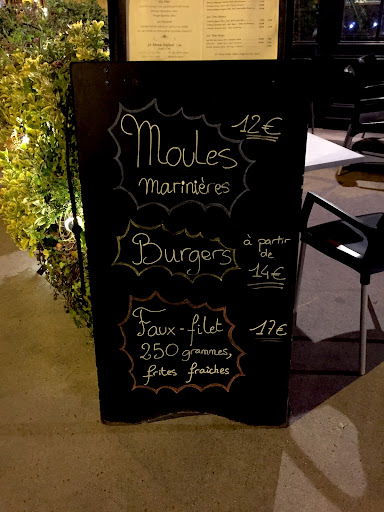 Moules 12€
marinières
Burgers à partir de 14€
Faux-filet 17€
250 grammes,
frites fraîches